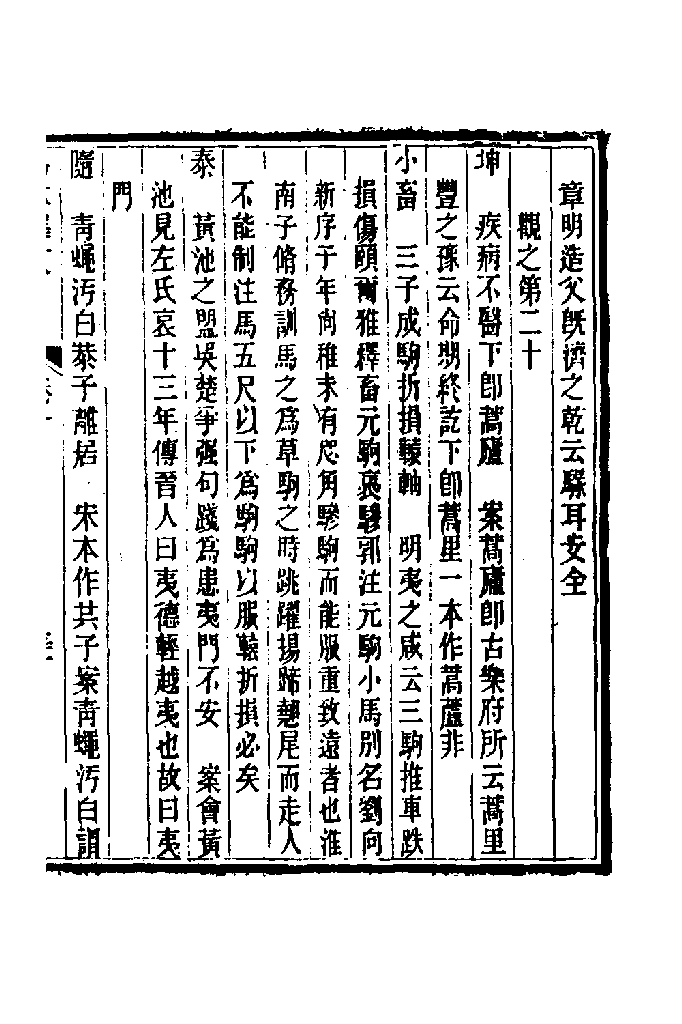 章明造父旣濟之乾云騄耳安全
觀之第二十
坤　疾病不醫下卽蒿廬　案蒿廬卽古樂府所云蒿里
豐之豫云命期終訖下卽蒿里一本作蒿蘆非
小畜　三子成駒折損轅軸　明夷之咸云三駒推車跌
損傷頤爾雅釋畜元駒褭驂郭注元駒小馬別名劉向
新序于年尚稚未有咫角驂駒而能服重致遠者也淮
南子脩務訓馬之爲草駒之時跳躍揚蹄翹尾而走人
不能制注馬五尺以下爲駒駒以服轅折損必矣
泰　黃池之盟吳楚爭强句踐爲患夷門不安　案會黃
池見左氏哀十三年傳晉人曰夷德輕越夷也故曰夷
門
隨　靑蠅汚白恭子離居　宋本作共子案靑蠅汚白謂